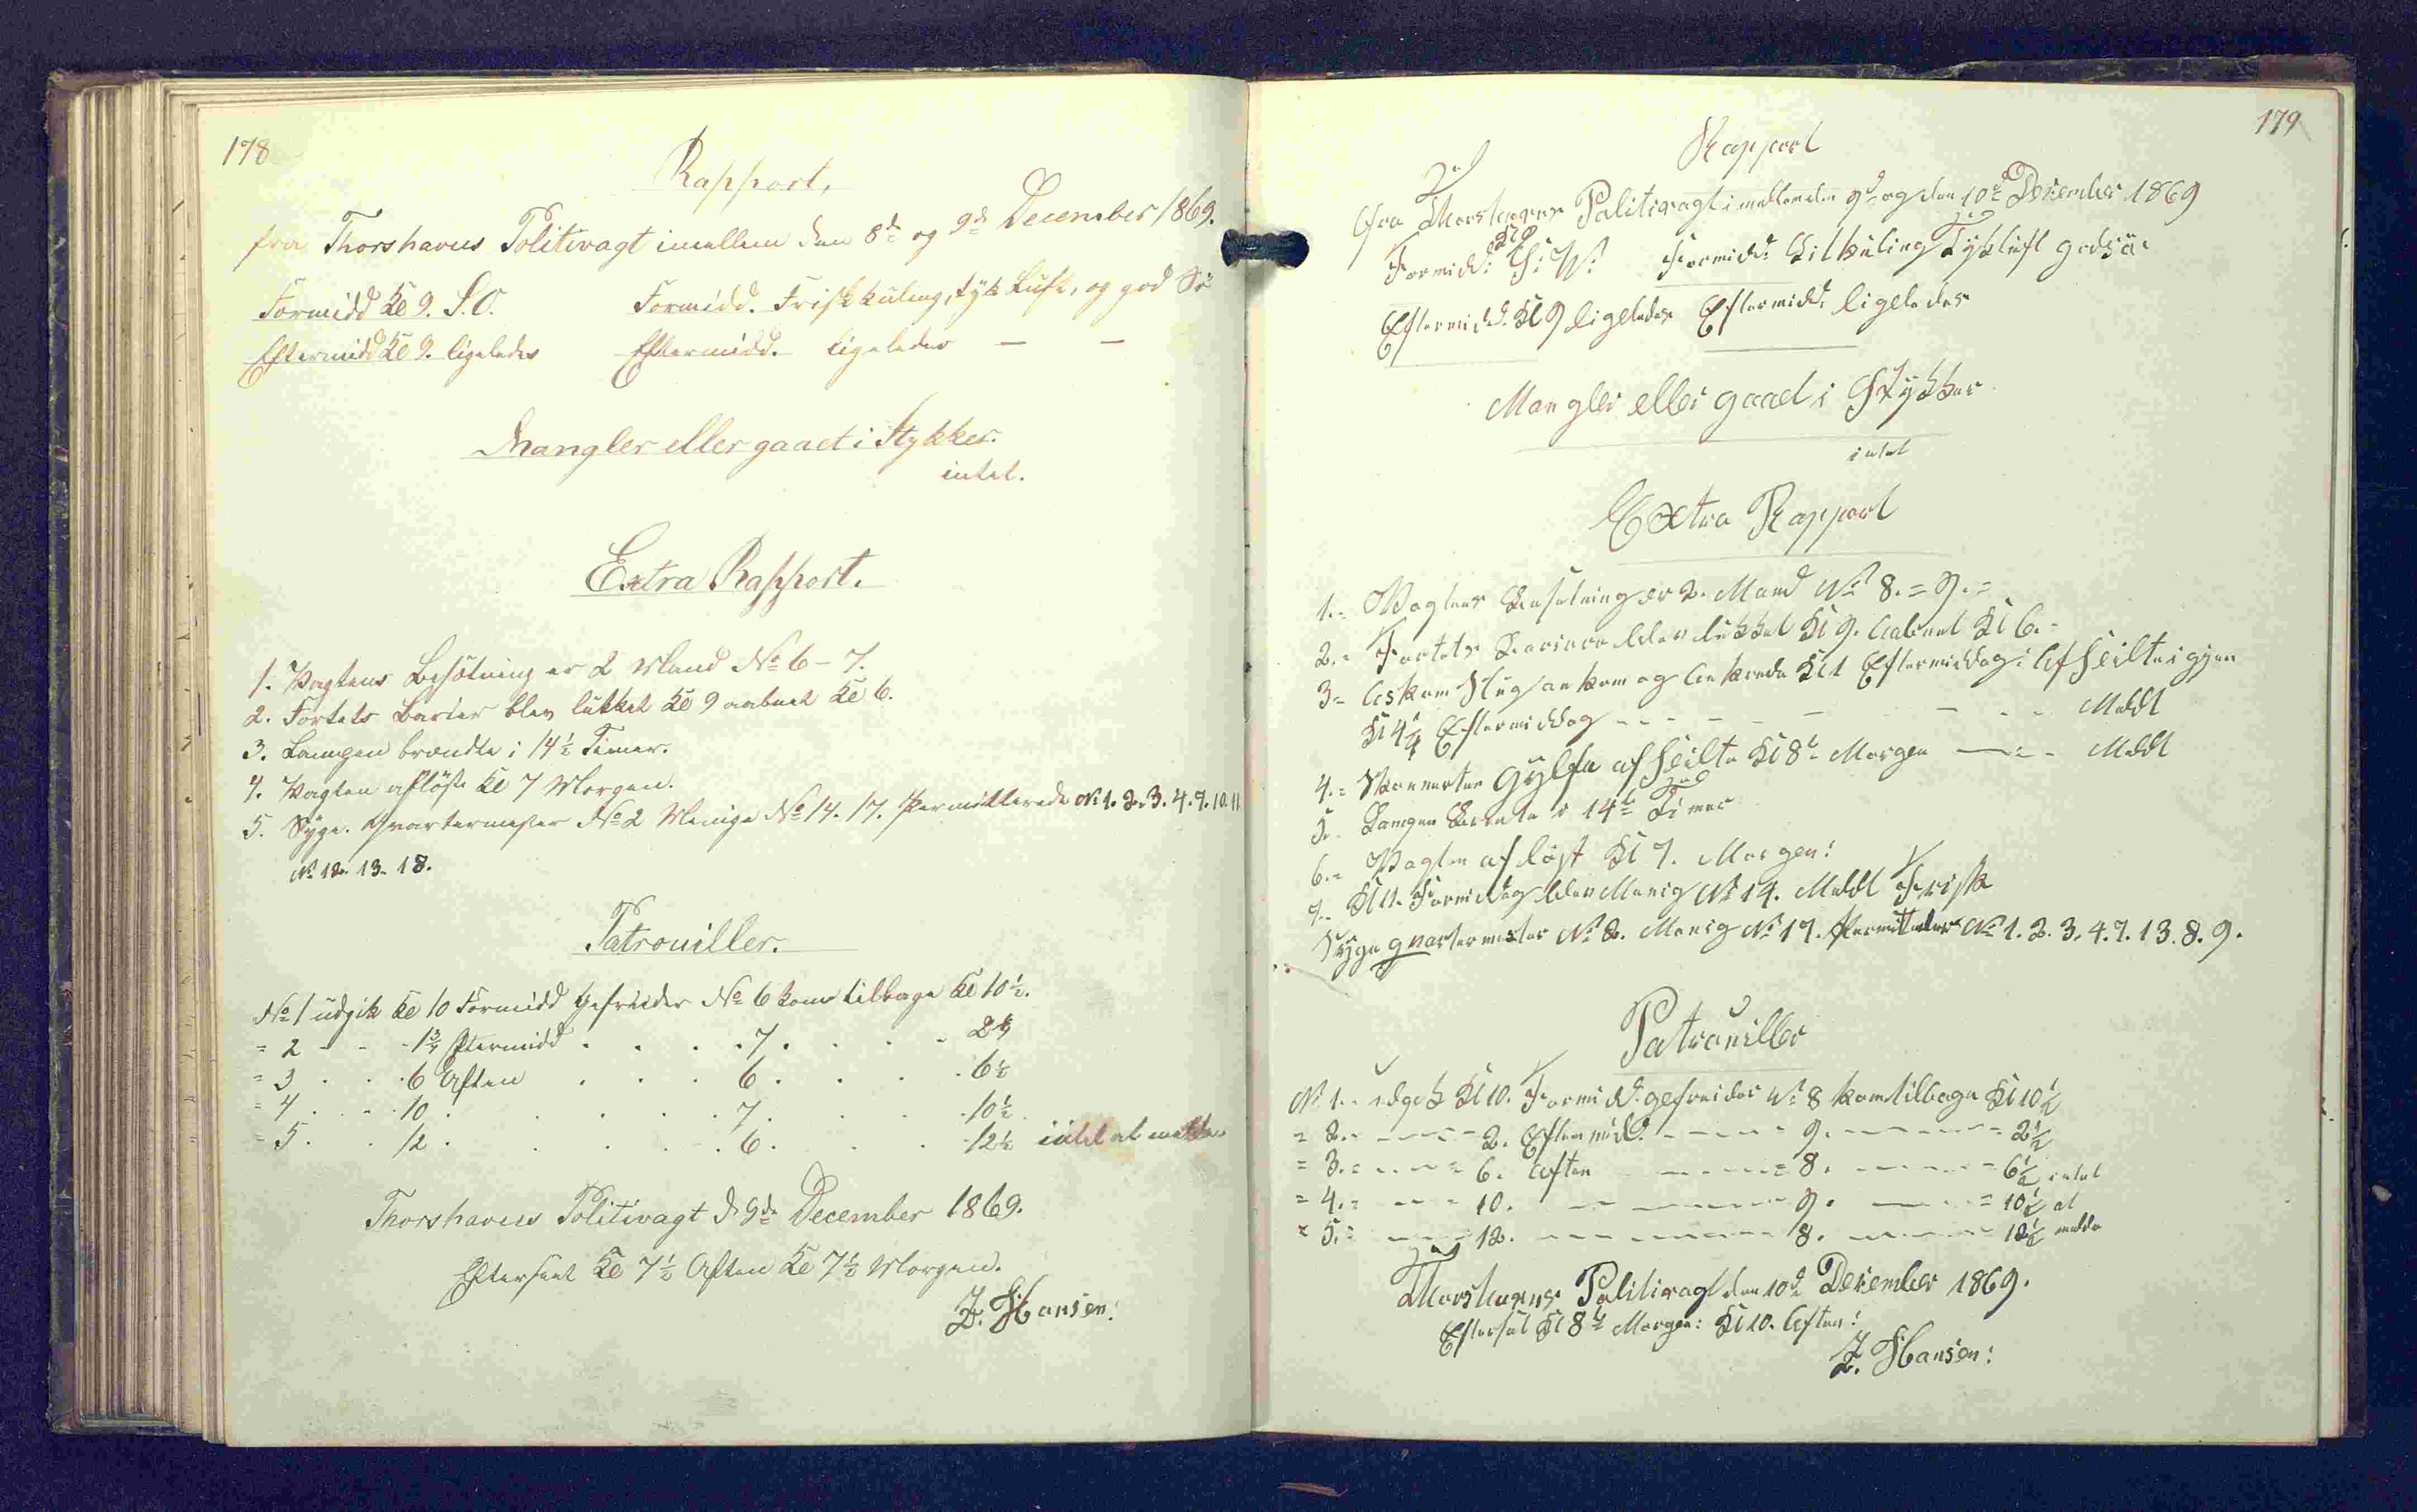 178
Rapport,
fra Thorshavns Politivagt imellem den 8de og 9de December 1869.
Formidd Kl 9. S.O. Formidd. Frisk kuling, tyk Luft, og god Sö
Eftermidd Kl 9. ligeledes Eftermidd. ligeledes — —
Mangler eller gaaet i Stykker.
intet.
Extra Rapport.
1. Vagtens Besætning er 2 Mand No 6 - 7.
2. Fortets Barier blev lukket Kl 9 aabnet Kl 6.
3. Lampen brændte i 14½ Timer.
4. Vagten aflöst Kl 7 Morgen.
5. Syge. Qvartermester No 2 Menige No 14. 17. Permitterede No 1. 2. 3. 4. 7. 10. 11
No 12. 13. 18.
Patrouiller.
No 1 udgik Kl 10 Formidd Gefreider No 6 kom tilbage Kl 10½.
= 2 - - - 1¾ Eftermidd . . . . 7. . . . 2¼
= 3 . . . 6 Aften . . . 6. . . . 6½
= 4 . . . 10 . . . . 7. . . . 10½
= 5. . . 12 . . . . 6. . . . 12½ intet at melde
Thorshavns Politivagt d 9de December 1869.
Efterseet Kl 7½ Aften Kl 7½ Morgen.
J. Hansen.
179
Rapport
fra Thorshavns Politivagt imellem den 9d og den 10de December 1869
Formidd: Kl 9 Formidd: kuling Tykluft godsö
Eftermidd: Kl 9 ligeledes Eftermidd: ligeledes
Mangler eller gaaet i Stykker
intet
Extra Rapport
1.- Vagtens Besætning er 2. Mand No 8. = 9. =
2.- Fortets Bariere blev lukket Kl 9. aabnet Kl 6. -
3- ankom og ankrede Kl 1 Eftermiddag: Afseilte igjen
Kl 4¼ Eftermiddag - - - Meldt
4.- Skonnerten Gylfe afseilte Kl 8½ Morgen — Meldt
5.- Lampen Brente i 14½ Timer
6.- Vagten afløst Kl 7. Morgen:
7.- Kl 11. Formiddag blev Menig No 14. Meldt Frisk
Syge qvartermester No 2. Menig No 17. Permitteder No 1. 2. 3. 4. 7. 13. 8. 9.
Patrouiller
No 1.- udgik Kl 10. Formidd: gefreider No 8 kom tilbage Kl 10½
= 2.- - - - 2. Eftermidd: - - - 9. - - - 2½
= 3.= - - - 6. Aften - - - 8. - - - 6½ intet
= 4.= - - - 10. - - - 9. - - - 10½ at
= 5.= - - - 12. - - - 8. - - - 12½ melde
Thorshavns Politivagt den 10d December 1869.
Efterset Kl 8½ Morgen: Kl 10. Aften:
J. Hansen: